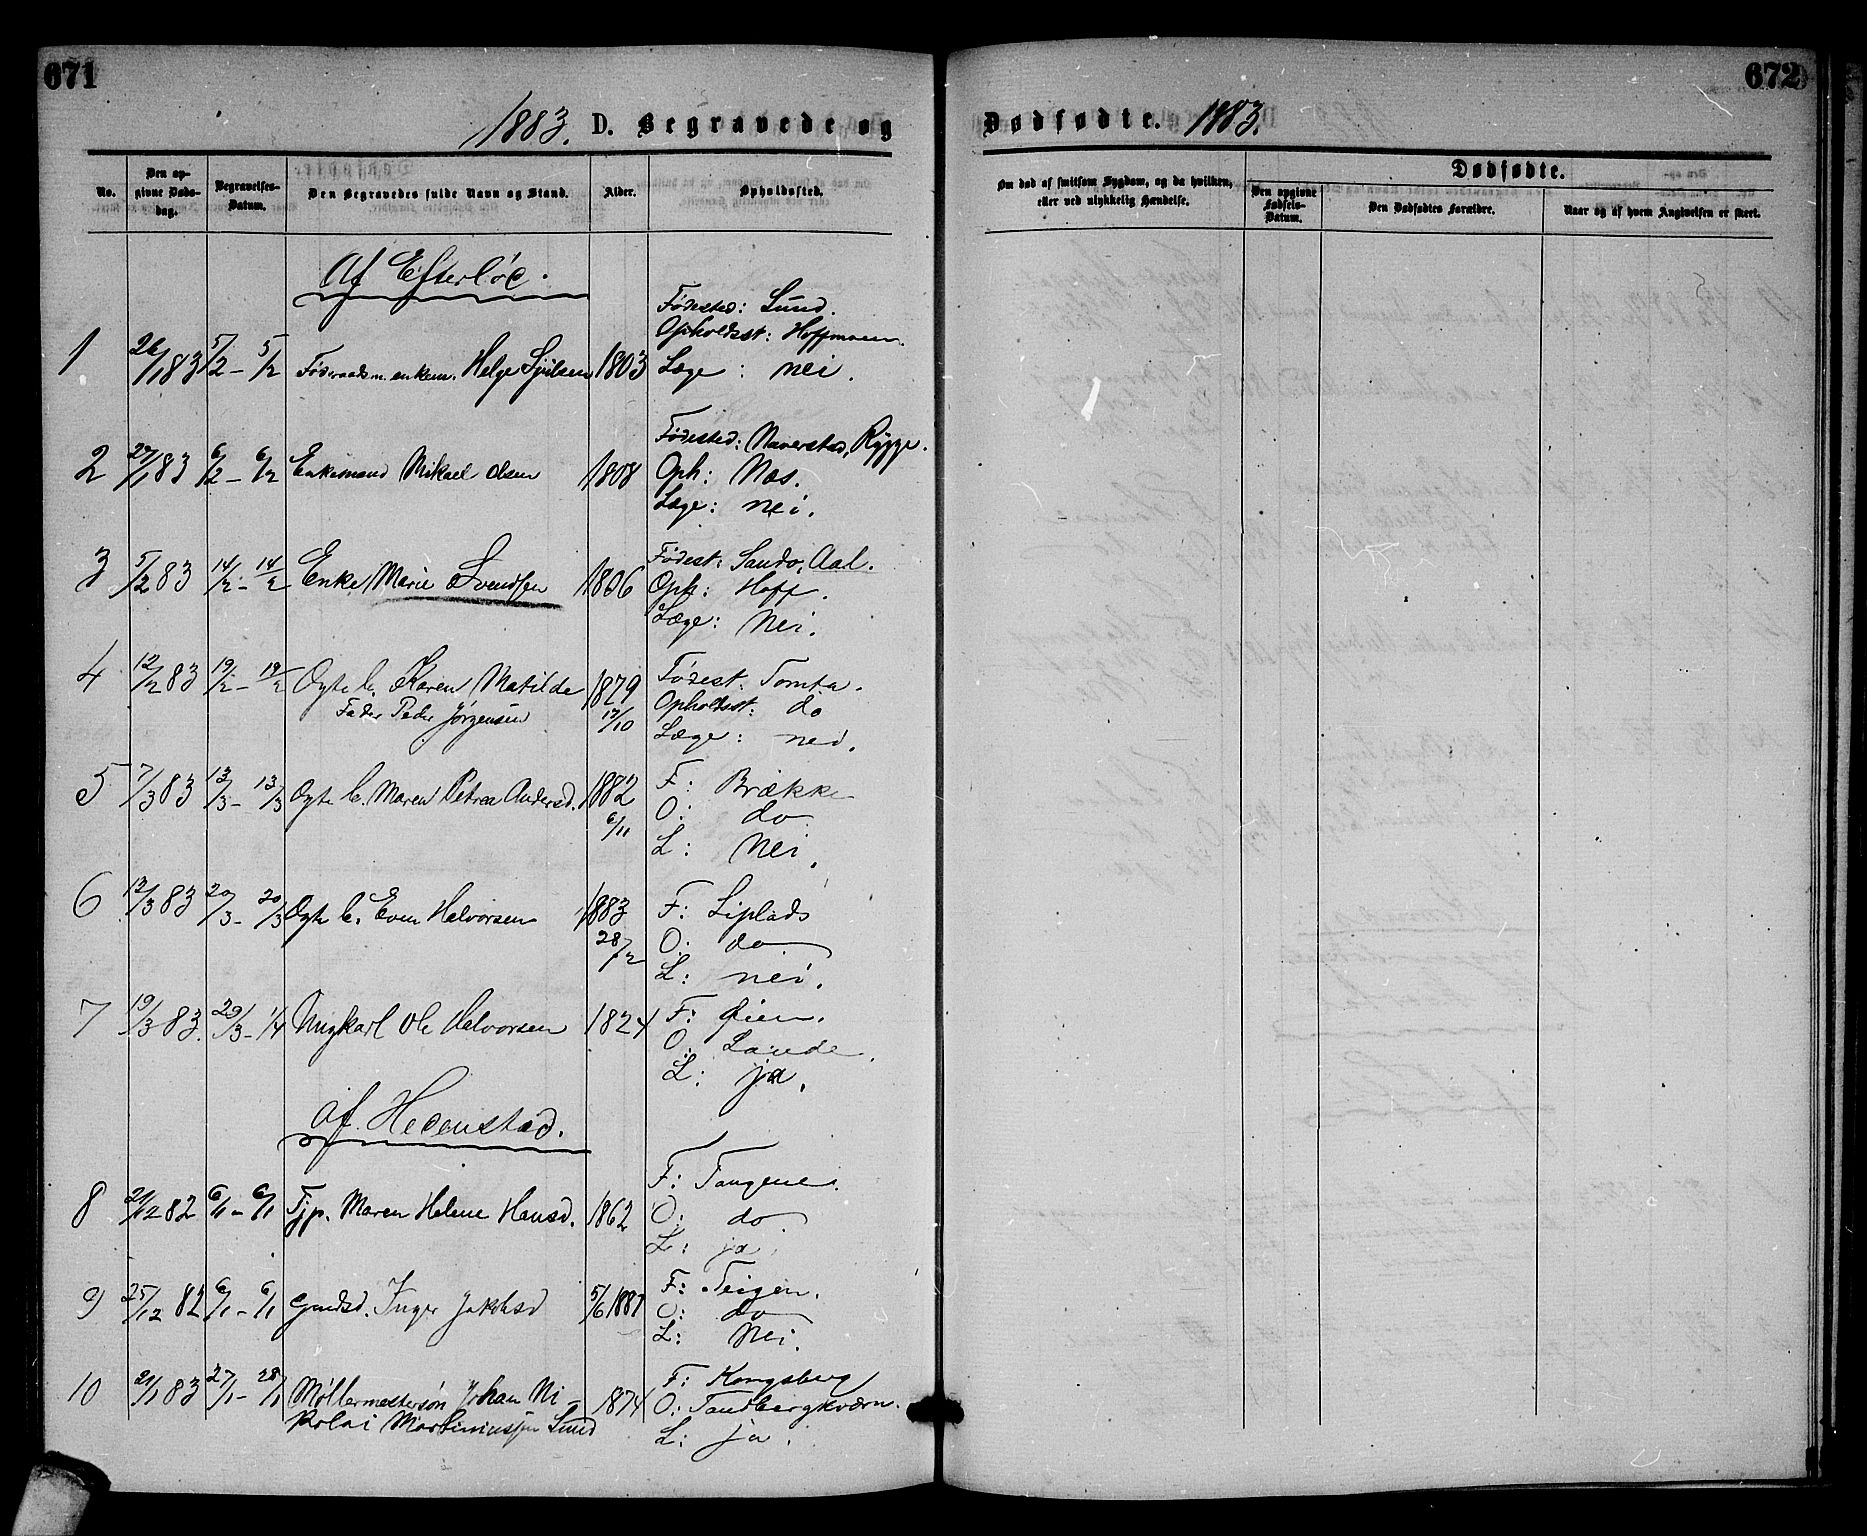 671
672
1883. D. Begravede og
Dødfødte. 1883.
No.
Den op-
givne Døds-
dag.
Begravelses-
Datum.
Den Begravedes fulde Navn og Stand.
Alder.
Opholdssted.
Om død af smitsom Sygdom, og da hvilken,
eller ved ulykkelig Hændelse.
Dødfødte.
Den opgivne
Fødsels-
Datum.
Den Dødfødtes Forældre.
Naar og af hvem Angivelsen er skeet.
Af Efterløe.
Fødested: Lund.
Opholdsst: Hoffmoen.
1 26/1 83 5/2 – 5/2 Føderaadsm. enkem. Helge 1803 Læge: nei.
Fødested: Naverstad, Rygge.
2 27/1 83 6/2 – 6/2 Enkemand Mikael Olsen 1808 Oph: Næs.
Læge: nei.
Fødest: Sando, Aal.
3 5/2 83 14/2 – 14/2 Enke Marie Svendsen 1806 Oph: Hoff.
Læge: Nei.
4 12/2 83 19/2 – 19/2 Ægte b. Karen Matilde 1879 Fødest: Tomta.
Fader Peder Jørgensen 17/10 Opholdsst: do
Læge: nei.
5 7/3 83 13/3 – 13/3 Ægte b. Maren Petrea Andersd. 1882 F: Brække
6/11 O: do
L: Nei.
6 12/3 83 20/3 – 20/3 Ægte b. Even Halvorsen 1883 F: Liplads
28/2 O: do
L: nei.
7 19/3 83. 29/3 – 1/4 Ungkarl Ole Halvorsen 1824 F: Øien.
O: Lande.
L: ja.
Af Hedenstad.
F: Tangene.
8 21/12 82 6/1 – 6/1 Tjp. Maren Helene Hansd. 1862 O: do.
L: ja.
9 25/12 82 6/1 – 6/1 Gmdsd. Inger Jakobsd 5/6 1881 F: Teigen.
O: do
L: Nei.
10 21/1 83 27/1 – 28/1 Møllermestersøn Johan Ni- 1874 F: Kongsberg
kolai Martiniussen Lund O: Tandbergkværn.
L: ja.